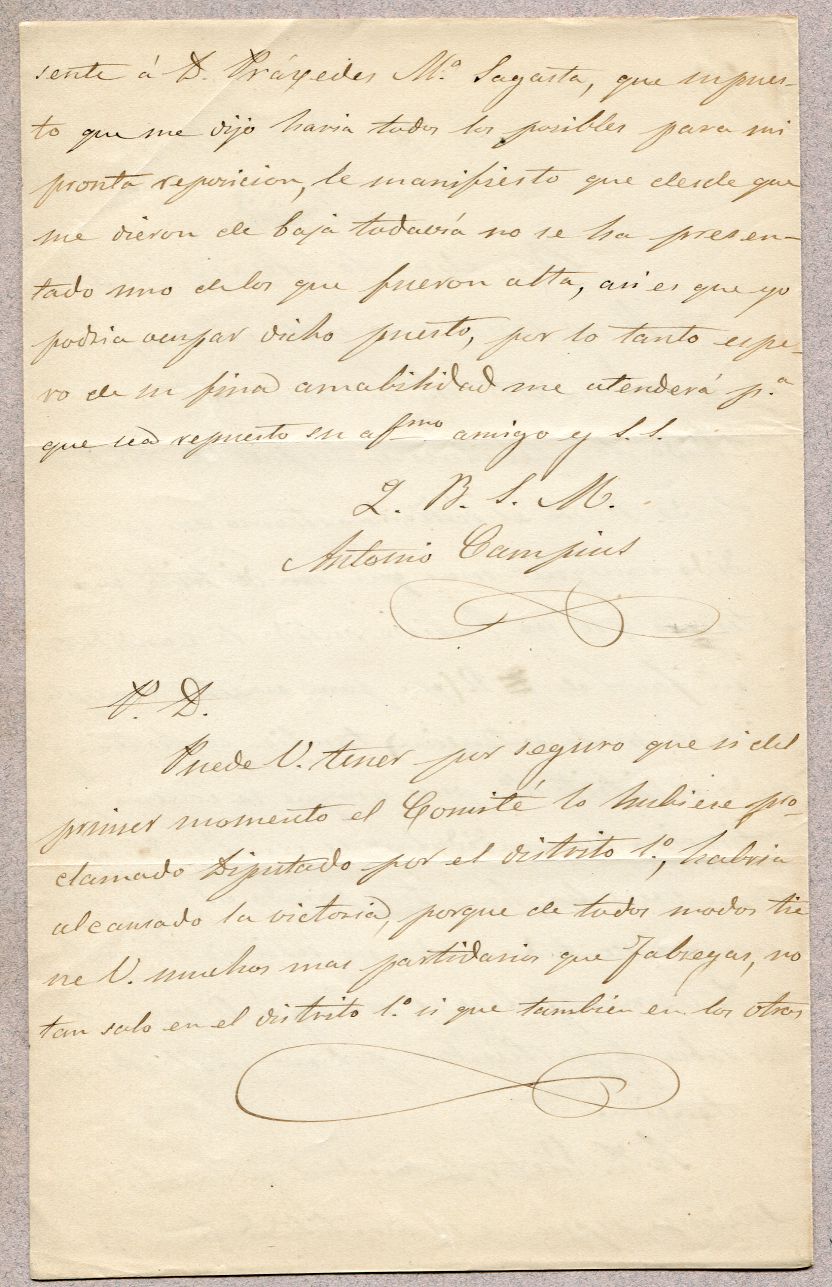 sente á D. Práxedes M.ª Sagasta, que supues-
to que me dijo haria todos los posibles para mi
pronta reposicion, le manifiesto que desde que
me dieron de baja todavia no se ha presen-
tado uno de los que fueron alta, asi es que yo
podria ocupar dicho puesto, por lo tanto espe-
ro de su fina amabilidad me atenderá p.ª
que sea repuesto su afmo amigo y S. S.
Q. B. S. M.
Antonio Campius
P. D.
Puede V. tener por seguro que si del
primer momento el Comité lo hubiese pro-
clamado Diputado por el distrito 1.º, habria
alcansado la victoria, porque de todos modos tie
ne V. muchos mas partidarios que Fabregas, no
tan solo en el distrito 1.º si que tambien en los otros